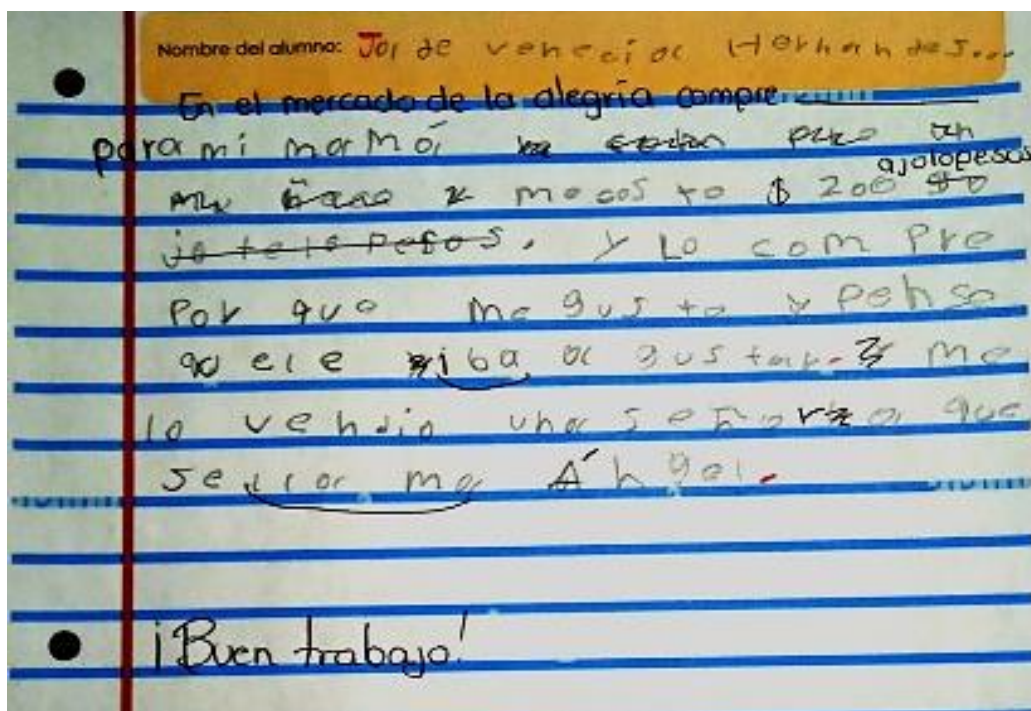 Nombre del alumno: Jorge venecia Hernandes...
En el mercado de la alegria compre
para mi mamá un
ajolopesos
me costo $ 200
jotelopesos. y Lo compre
Porque me gusto y penso
qele iba a gustar. me
lo vendio una señora que
se llama Ángel.
¡Buen trabajo!